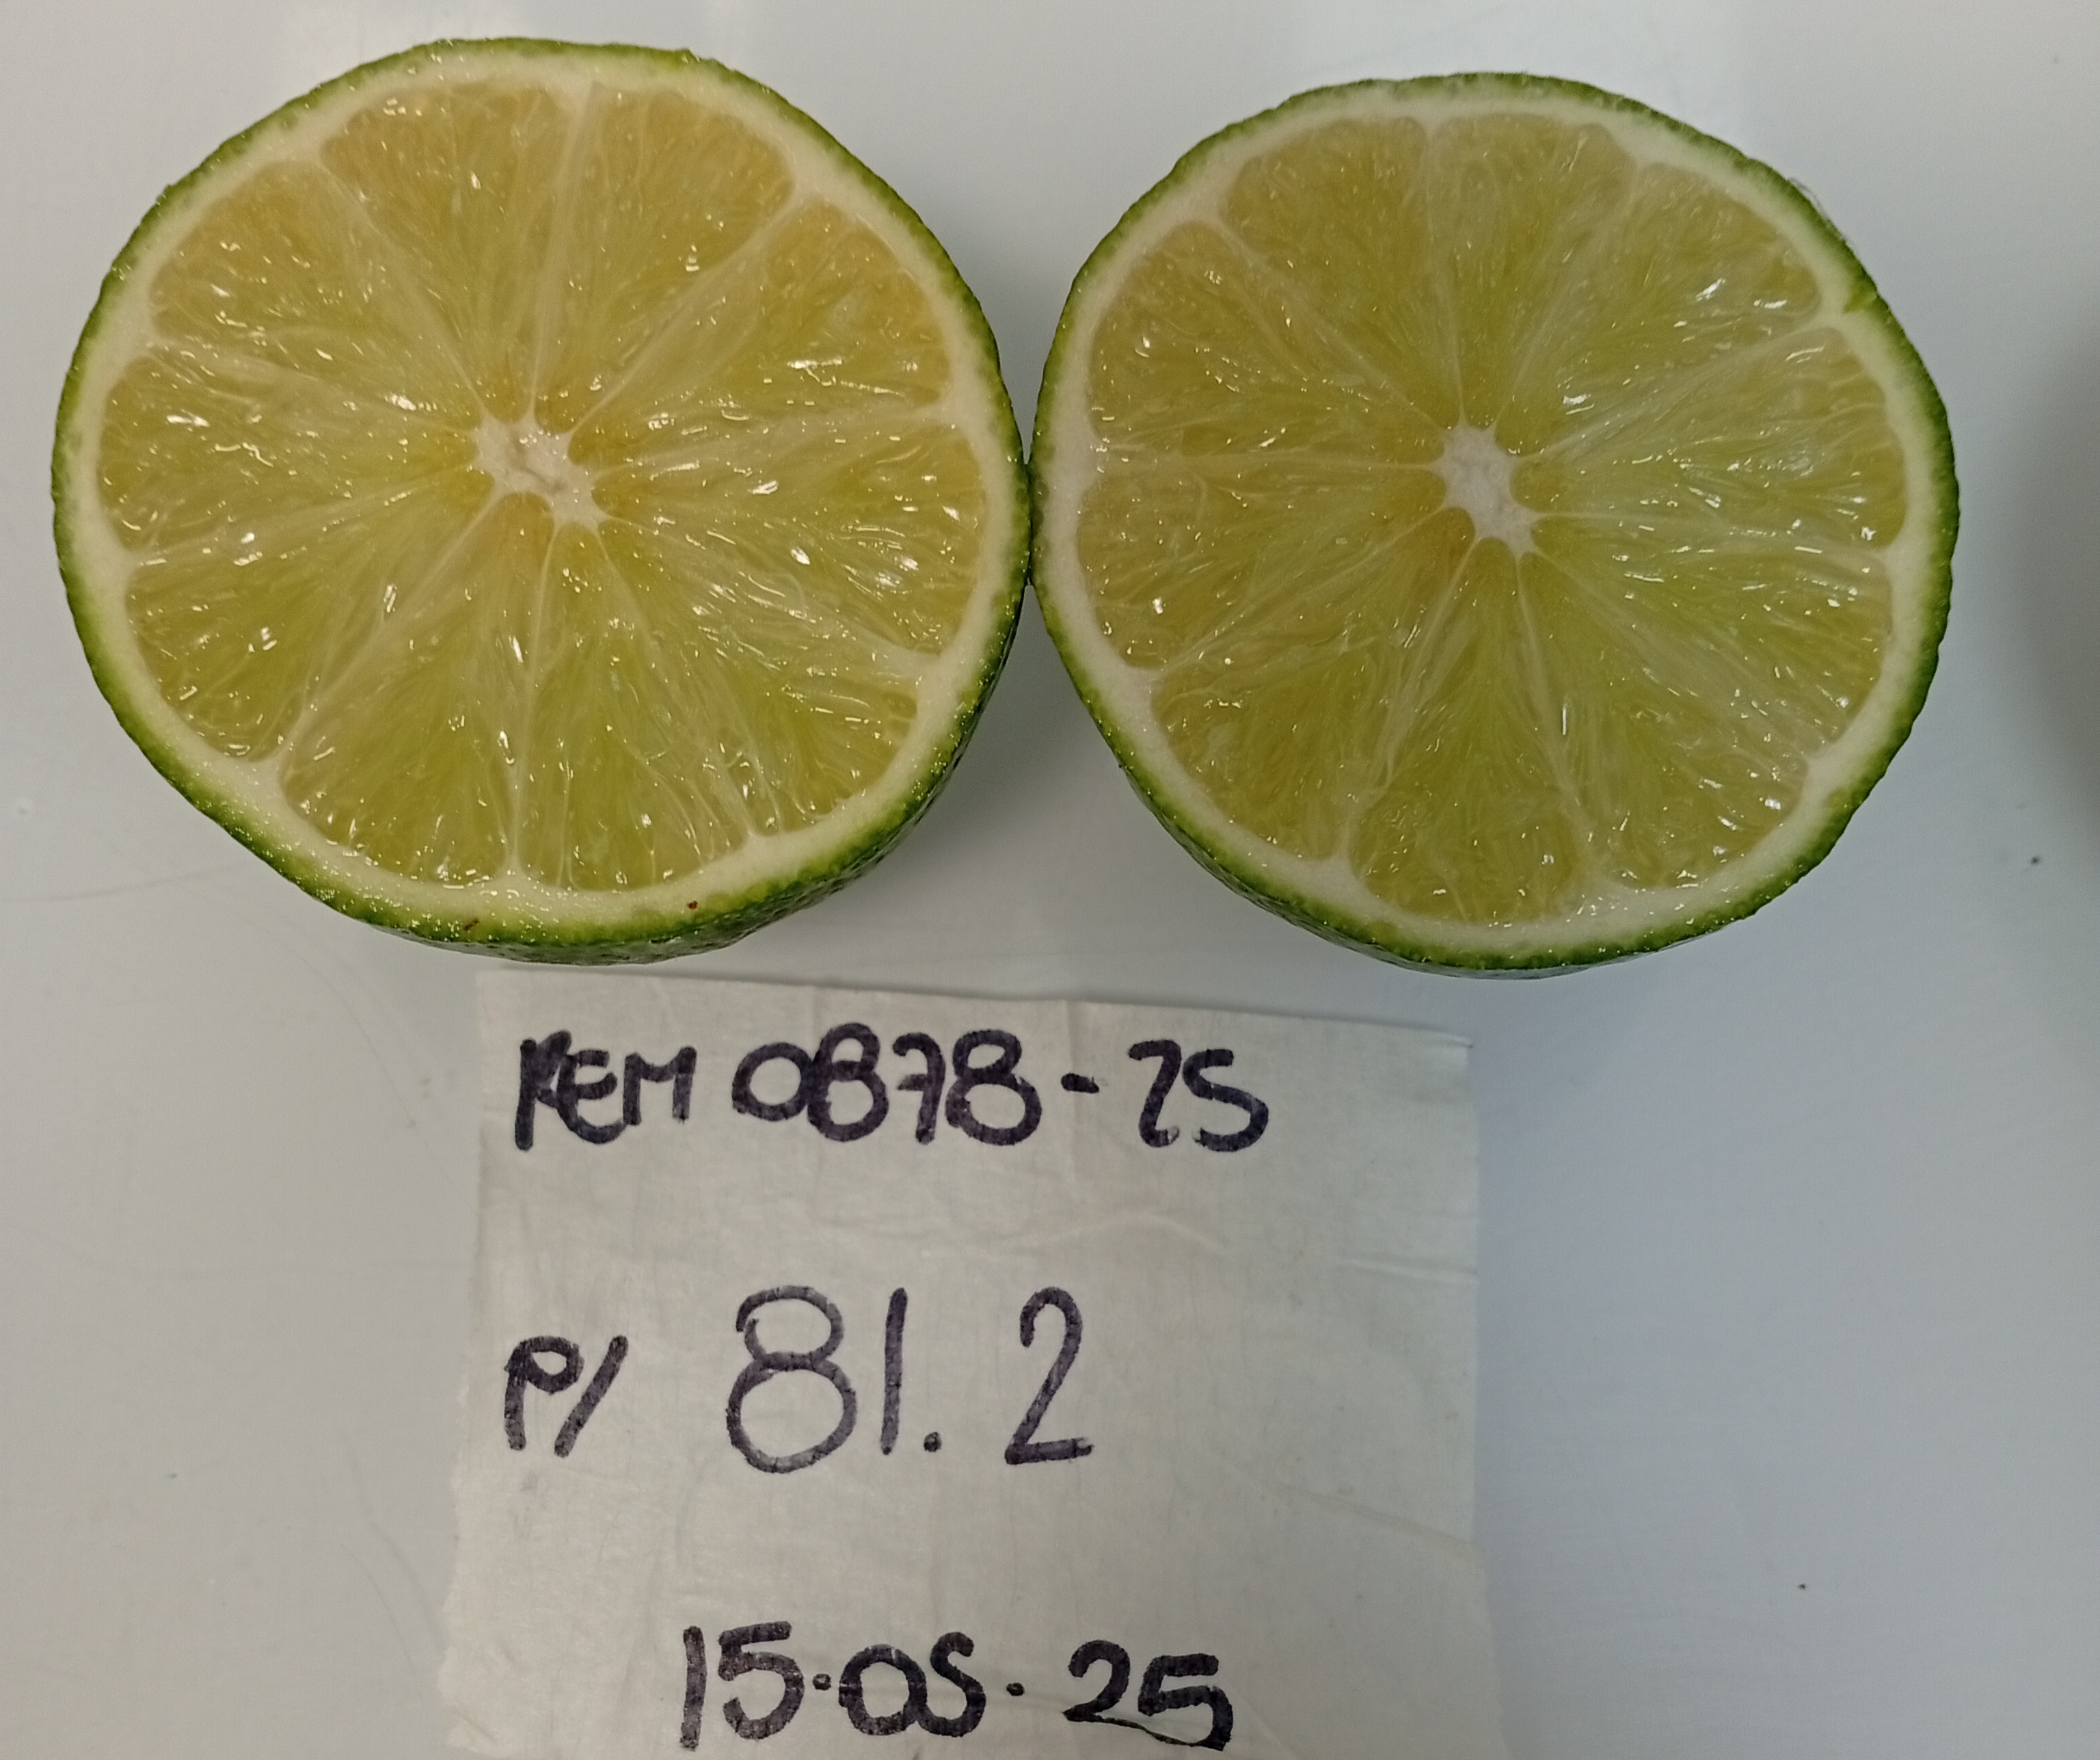 REM 0878-25
P/ 81.2
15.05.25